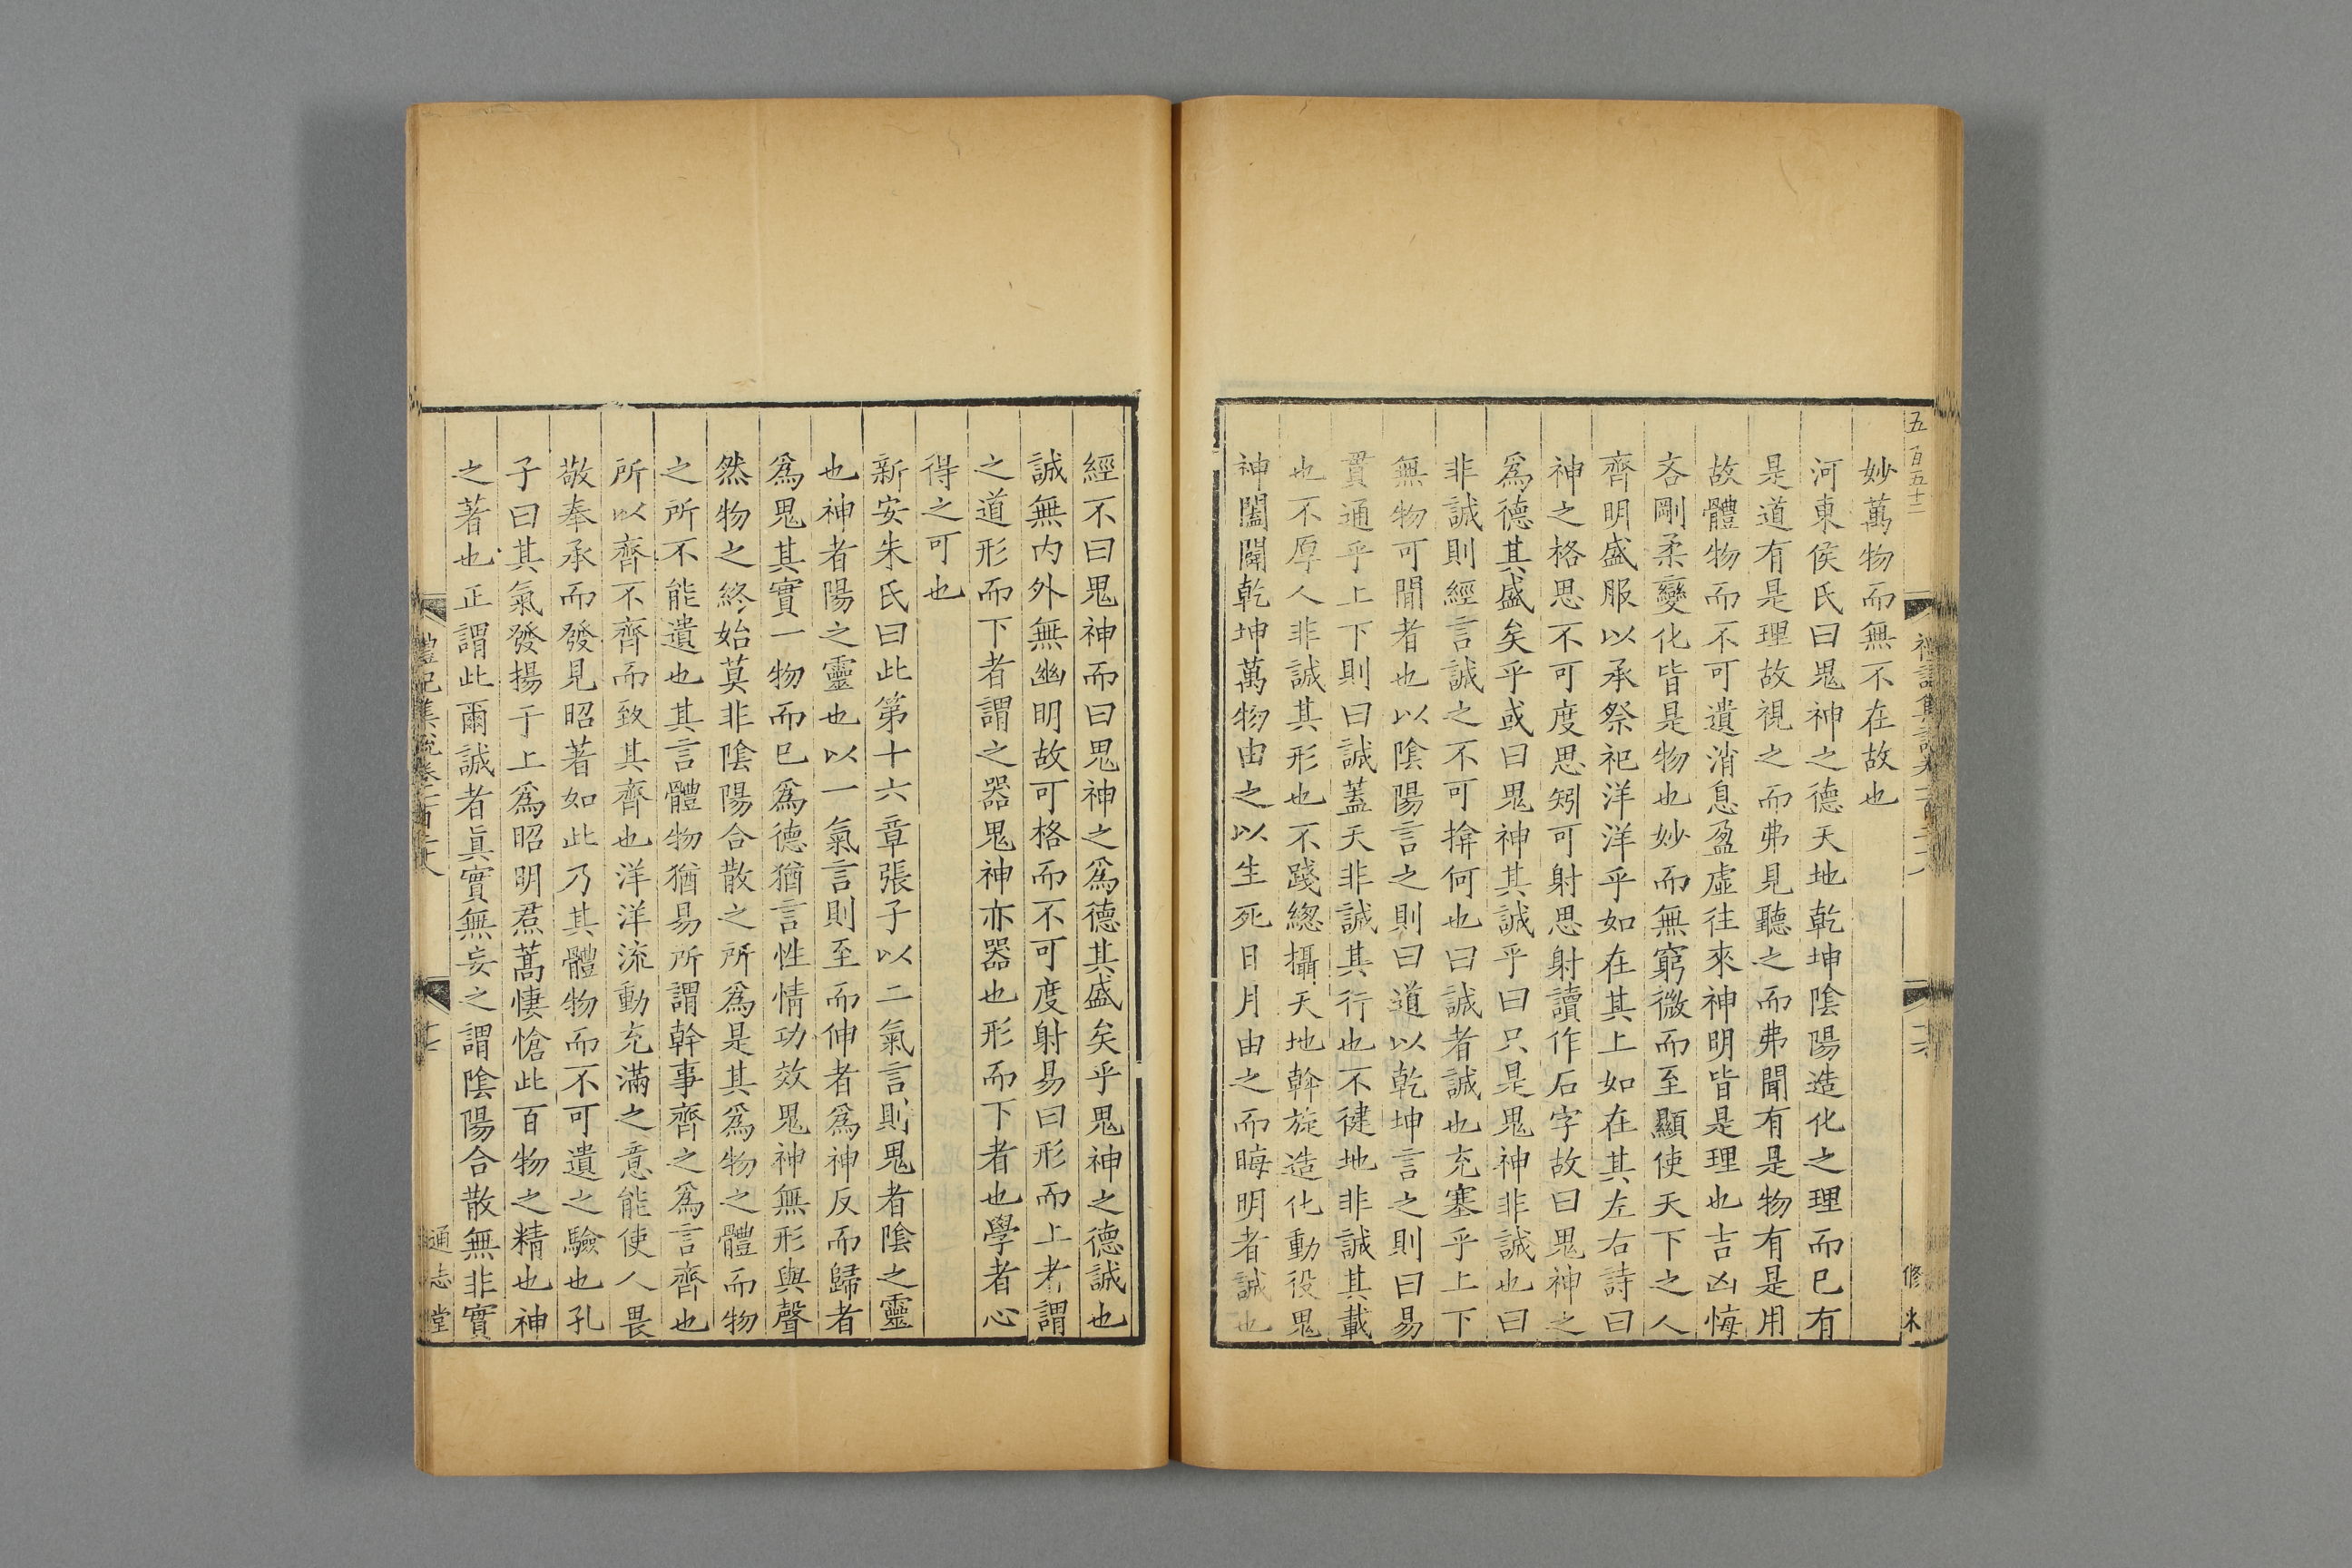 五百五十二
妙萬物而無不在故也
河東侯氏曰鬼神之德天地乾坤陰陽造化之理而已有
是道有是理故視之而弗見聽之而弗聞有是物有是用
故體物而不可遺消息盈虛往來神明皆是理也吉凶悔
吝剛柔變化皆是物也妙而無窮微而至顯使天下之人
齊明盛服以承祭祀洋洋乎如在其上如在其左右詩曰
神之格思不可度思矧可射思射讀作石字故曰鬼神之
爲德其盛矣乎或曰鬼神其誠乎曰只是鬼神非誠也曰
非誠則經言誠之不可揜何也曰誠者誠也充塞乎上下
無物可間者也以陰陽言之則曰道以乾坤言之則曰易
貫通乎上下則曰誠蓋天非誠其行也不徤地非誠其載
也不厚人非誠其形也不踐緫攝天地幹旋造化動役鬼
神闔闢乾坤萬物由之以生死日月由之而晦明者誠也
經不曰鬼神而曰鬼神之爲德其盛矣乎鬼神之德誠也
誠無内外無幽明故可格而不可度射易曰形而上者謂
之道形而下者謂之器鬼神亦器也形而下者也學者心
得之可也
新安朱氏曰此第十六章張子以二氣言則鬼者陰之靈
也神者陽之靈也以一氣言則至而伸者爲神反而歸者
爲鬼其實一物而已爲德猶言性情功效鬼神無形與聲
然物之終始莫非陰陽合散之所爲是其爲物之體而物
之所不能遺也其言體物猶易所謂幹事齊之爲言齊也
所以齊不齊而致其齊也洋洋流動充滿之意能使人畏
敬奉承而發見昭著如此乃其體物而不可遺之驗也孔
子曰其氣發揚于上爲昭明焄蒿悽愴此百物之精也神
之著也正謂此爾誠者眞實無妄之謂陰陽合散無非實
禮記集說卷
通志堂